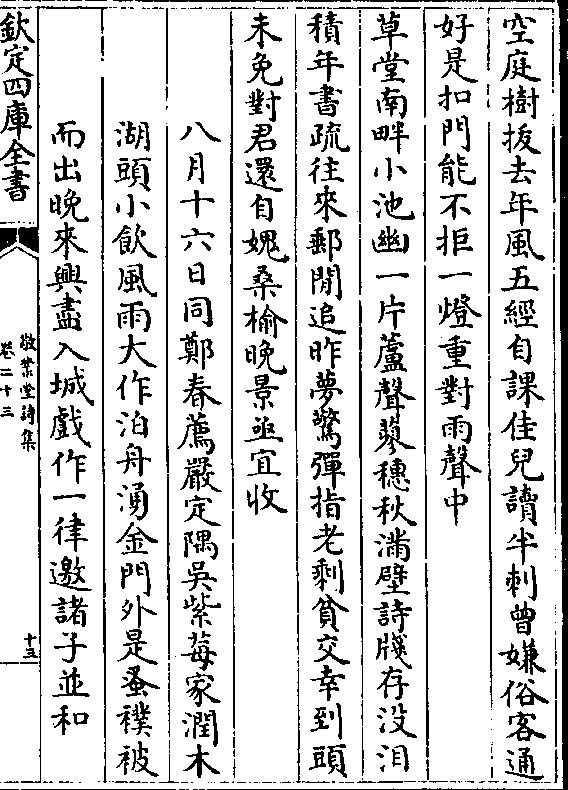 空庭樹拔去年風五經自課佳兒讀半刺曾嫌俗客通
好是扣門能不拒一燈重對雨聲中
草堂南畔小池幽一片蘆聲蓼穗秋滿壁詩牋存没泪
積年書疏往來郵閒追昨夢驚彈指老剩貧交幸到頭
未免對君還自媿桑榆晚景亟宜收
八月十六日同鄭春薦嚴定隅吳紫莓家潤木
湖頭小飲風雨大作泊舟湧金門外是蚤襆被
而出晚來興盡入城戲作一律邀諸子並和
欽定四庫全書
敬業堂詩集
卷二十三
十五